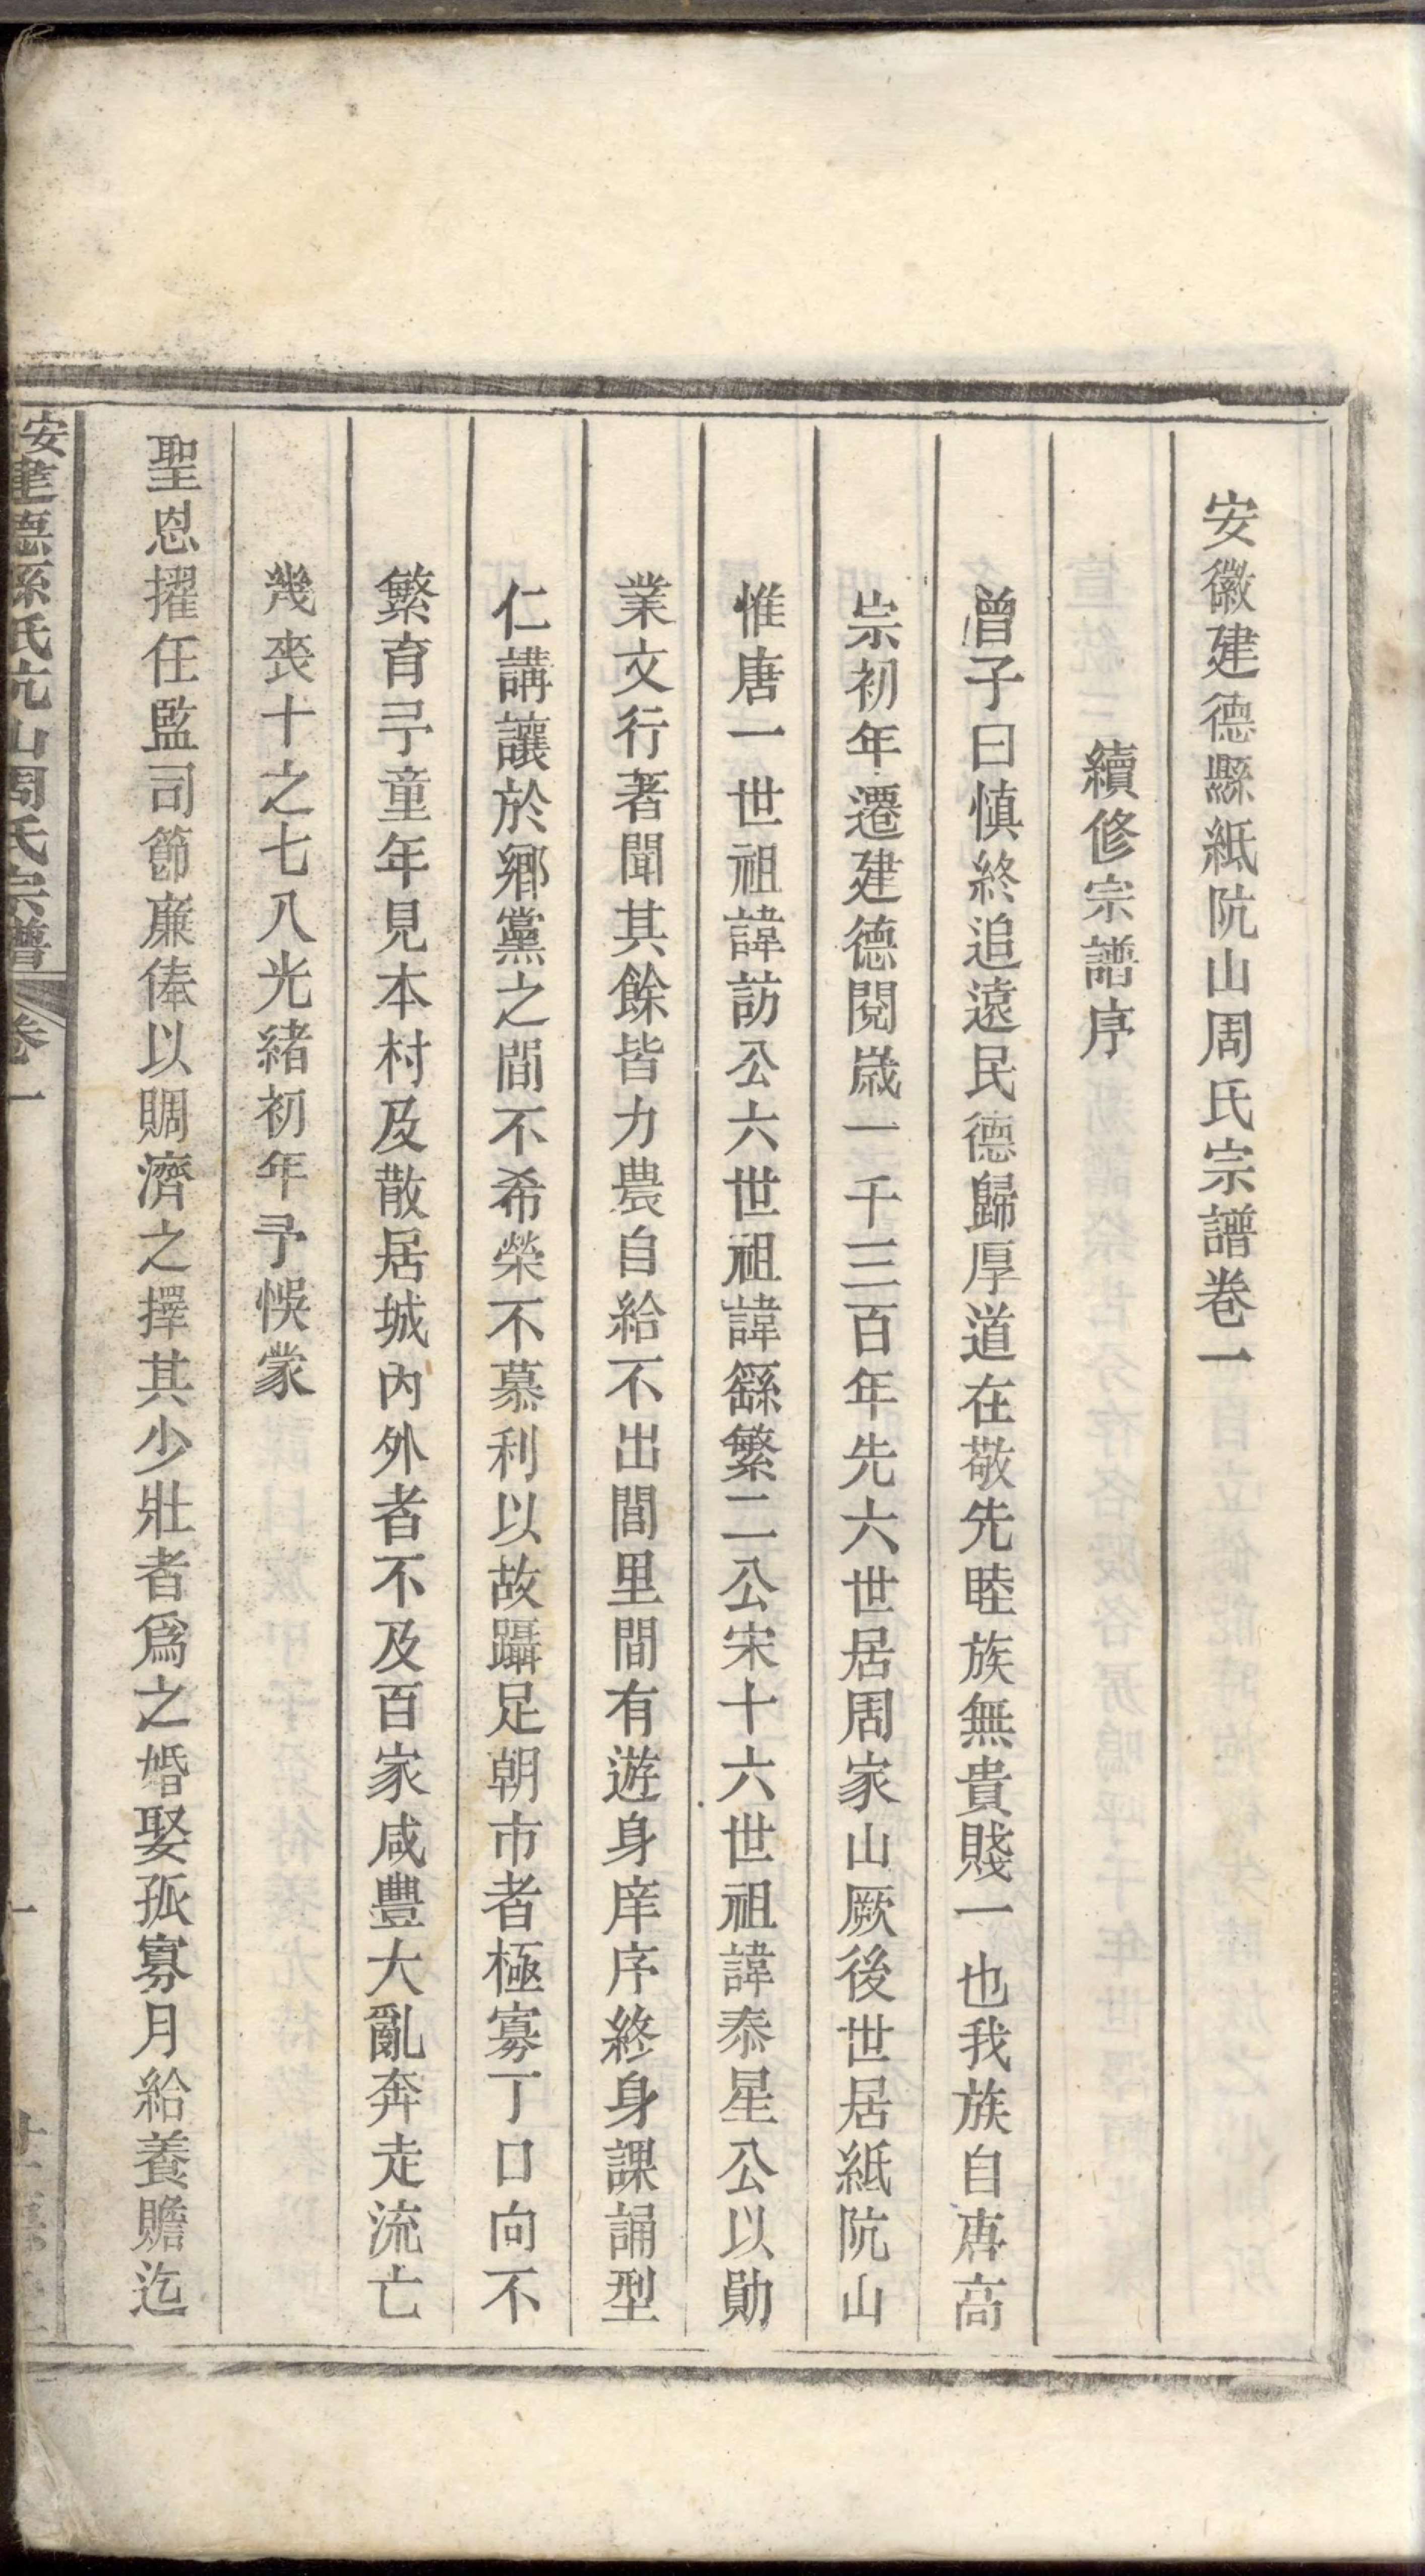 安徽建德縣紙阬山周氏宗譜卷一
續修宗譜序
曾子曰慎終追遠民德歸厚道在敬先睦族無貴賤一也我族自唐高
宗初年遷建德閱歲一千三百年先六世居周家山厥後世居紙阬山
惟唐一世祖諱訪公六世祖諱繇繁二公宋十六世祖諱泰星公以勛
業文行著聞其餘皆力農自給不出閭里間有遊身庠序終身課誦型
仁講讓於鄉黨之間不希榮不慕利以故躡足朝市者極寡丁口向不
繁育予童年見本村及散居城內外者不及百家咸豐大亂奔走流亡
幾喪十之七八光緒初年予悞蒙
聖恩擢任監司節廉俸以賙濟之擇其少壯者爲之婚娶孤寡月給養贍迄
安建德縣紙阬山周氏宗譜 卷一